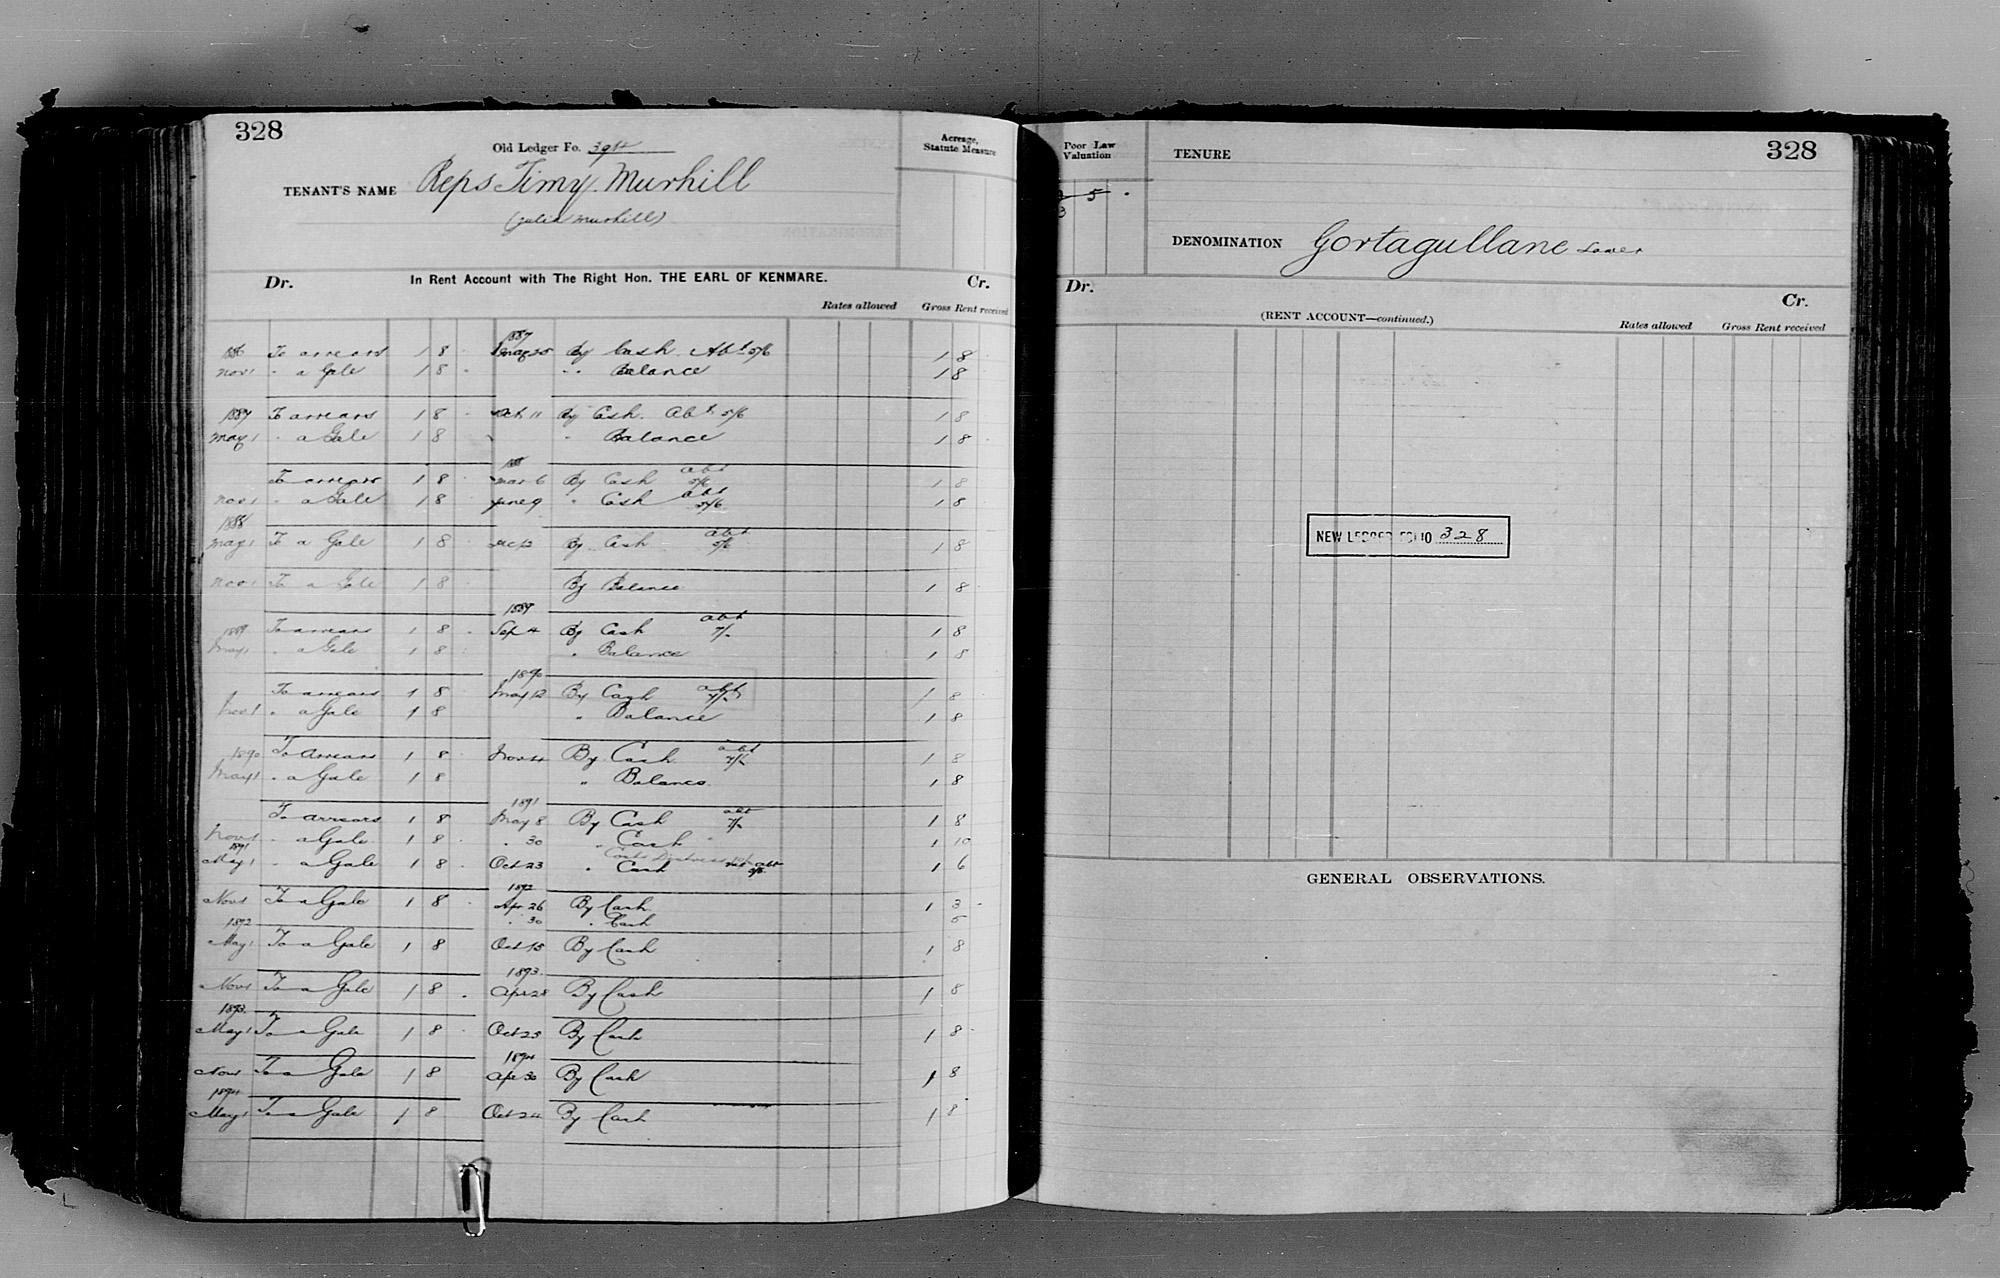 328
Old Ledger Fo.
Acreage,
Statute Measure
TENANT'S NAME Reps Timy. Murhill
(Julia Murhill)
In Rent Account with The Right Hon. THE EARL OF KENMARE.
Dr. Cr.
Rates allowed Gross Rent received
1887
1886 To arrears 1 8 May 25 By Cash. Abt 5/6 1 8
Nov 1 " a Gale 1 8 " Balance 1 8
1887 To arrears 1 8 Oct 11 By Cash. Abt 5/6 1 8
May 1 " a Gale 1 8 " Balance 1 8
1888 abt
To arrears 1 8 Mar 6 By Cash 5/6 1 8
Nov 1 " a Gale 1 8 June 9 " Cash abt 5/6 1 8
1888 abt
May 1 To a Gale 1 8 Dec 13 By Cash 5/6 1 8
Nov 1 To a Gale 1 8 By Balance 1 8
1889 abt
1889 To arrears 1 8 Sep 4 By Cash 7/- 1 8
May 1 " a Gale 1 8 " Balance 1 8
1890 abt
To arrears 1 8 May 12 By Cash 7/- 1 8
Nov 1 " a Gale 1 8 " Balance 1 8
1890 To Arrears 1 8 Nov By Cash abt 7/- 1 8
May 1 " a Gale 1 8 " Balance 1 8
1891 abt
To arrears 1 8 May 8 By Cash 7/- 1 8
Nov 1 " a Gale 1 8 " 30 " Cash 1 10
1891
May 1 " a Gale 1 8 Oct 23 " Cash abt 1 6
1892
Nov 1 To a Gale 1 8 Apr 26 By Cash 1 3
" 30 " Cash 5
1892
May 1 To a Gale 1 8 Oct 15 By Cash 1 8
1893
Nov 1 To a Gale 1 8 Apr 28 By Cash 1 8
1893
May 1 To a Gale 1 8 Oct 25 By Cash 1 8
1894
Nov 1 To a Gale 1 8 Apr 30 By Cash 1 8
1894
May 1 To a Gale 1 8 Oct 24 By Cash 1 8
Poor Law
Valuation
TENURE
328
5
3
DENOMINATION Gortagullane Lower
Dr. Cr.
(RENT ACCOUNT—continued.)
Rates allowed Gross Rent received
NEW LEDGER FOLIO 328
GENERAL OBSERVATIONS.